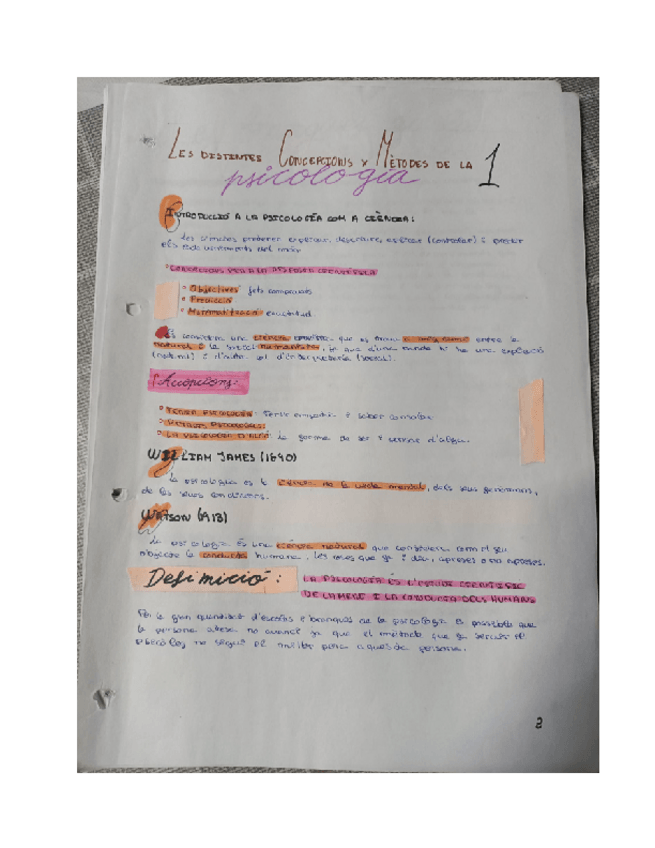 LES DISTINTES CONCEPCIONS Y MÈTODES DE LA 1
psicología
INTRODUCCIÓ A LA PSICOLOGÍA COM A CIÈNCIA:
Les ciències pretenen explicar, descriure, (controlar) i predir
els esdeveniments del món.
CONDICIONS PER A LA CIENTÍFICA
Objectives fets comprovats.
Predicció
Matematització exactitud.
Es considera una ciència que es troba a mig camí entre la
natural i la social humanista, ja que d'una banda hi ha una explicació
(natural) i d'altra, un d'interpretaría (social).
Accepcions:
TENER PSICOLOGÍA: Tenir empatia i saber consolar
LA PSICOLOGÍA D'ALGÚ: la forma de ser i sentir d'algú.
WILLIAM JAMES (1890)
La psicologia es la ciència de la vida mental, dels seus fenòmens,
de les seues condicions.
WATSON (1913)
La psicologia és una ciència natural que considera com el seu
objecte la conducta humana, les coses que fa i diu, apreses o no apreses.
Definició: LA PSICOLOGÍA ÉS L'ESTUDI CIENTÍFIC
DE LA MENT I LA CONDUCTA DELS HUMANS
Per la gran quantitat d'escoles i branques de la psicologia es possible que
la persona atesa no avance ja que el mètode que fa servir el
psicòleg no sigui el millor per a aquesta persona.
2